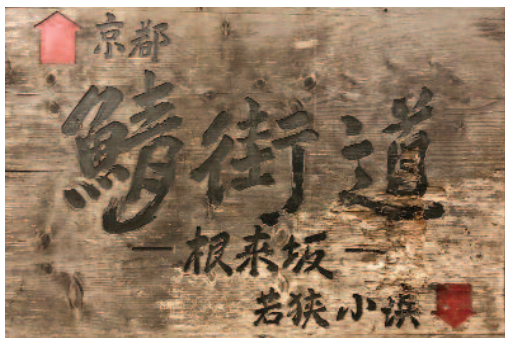 京都
鯖街道
－根来坂－
若狭小浜